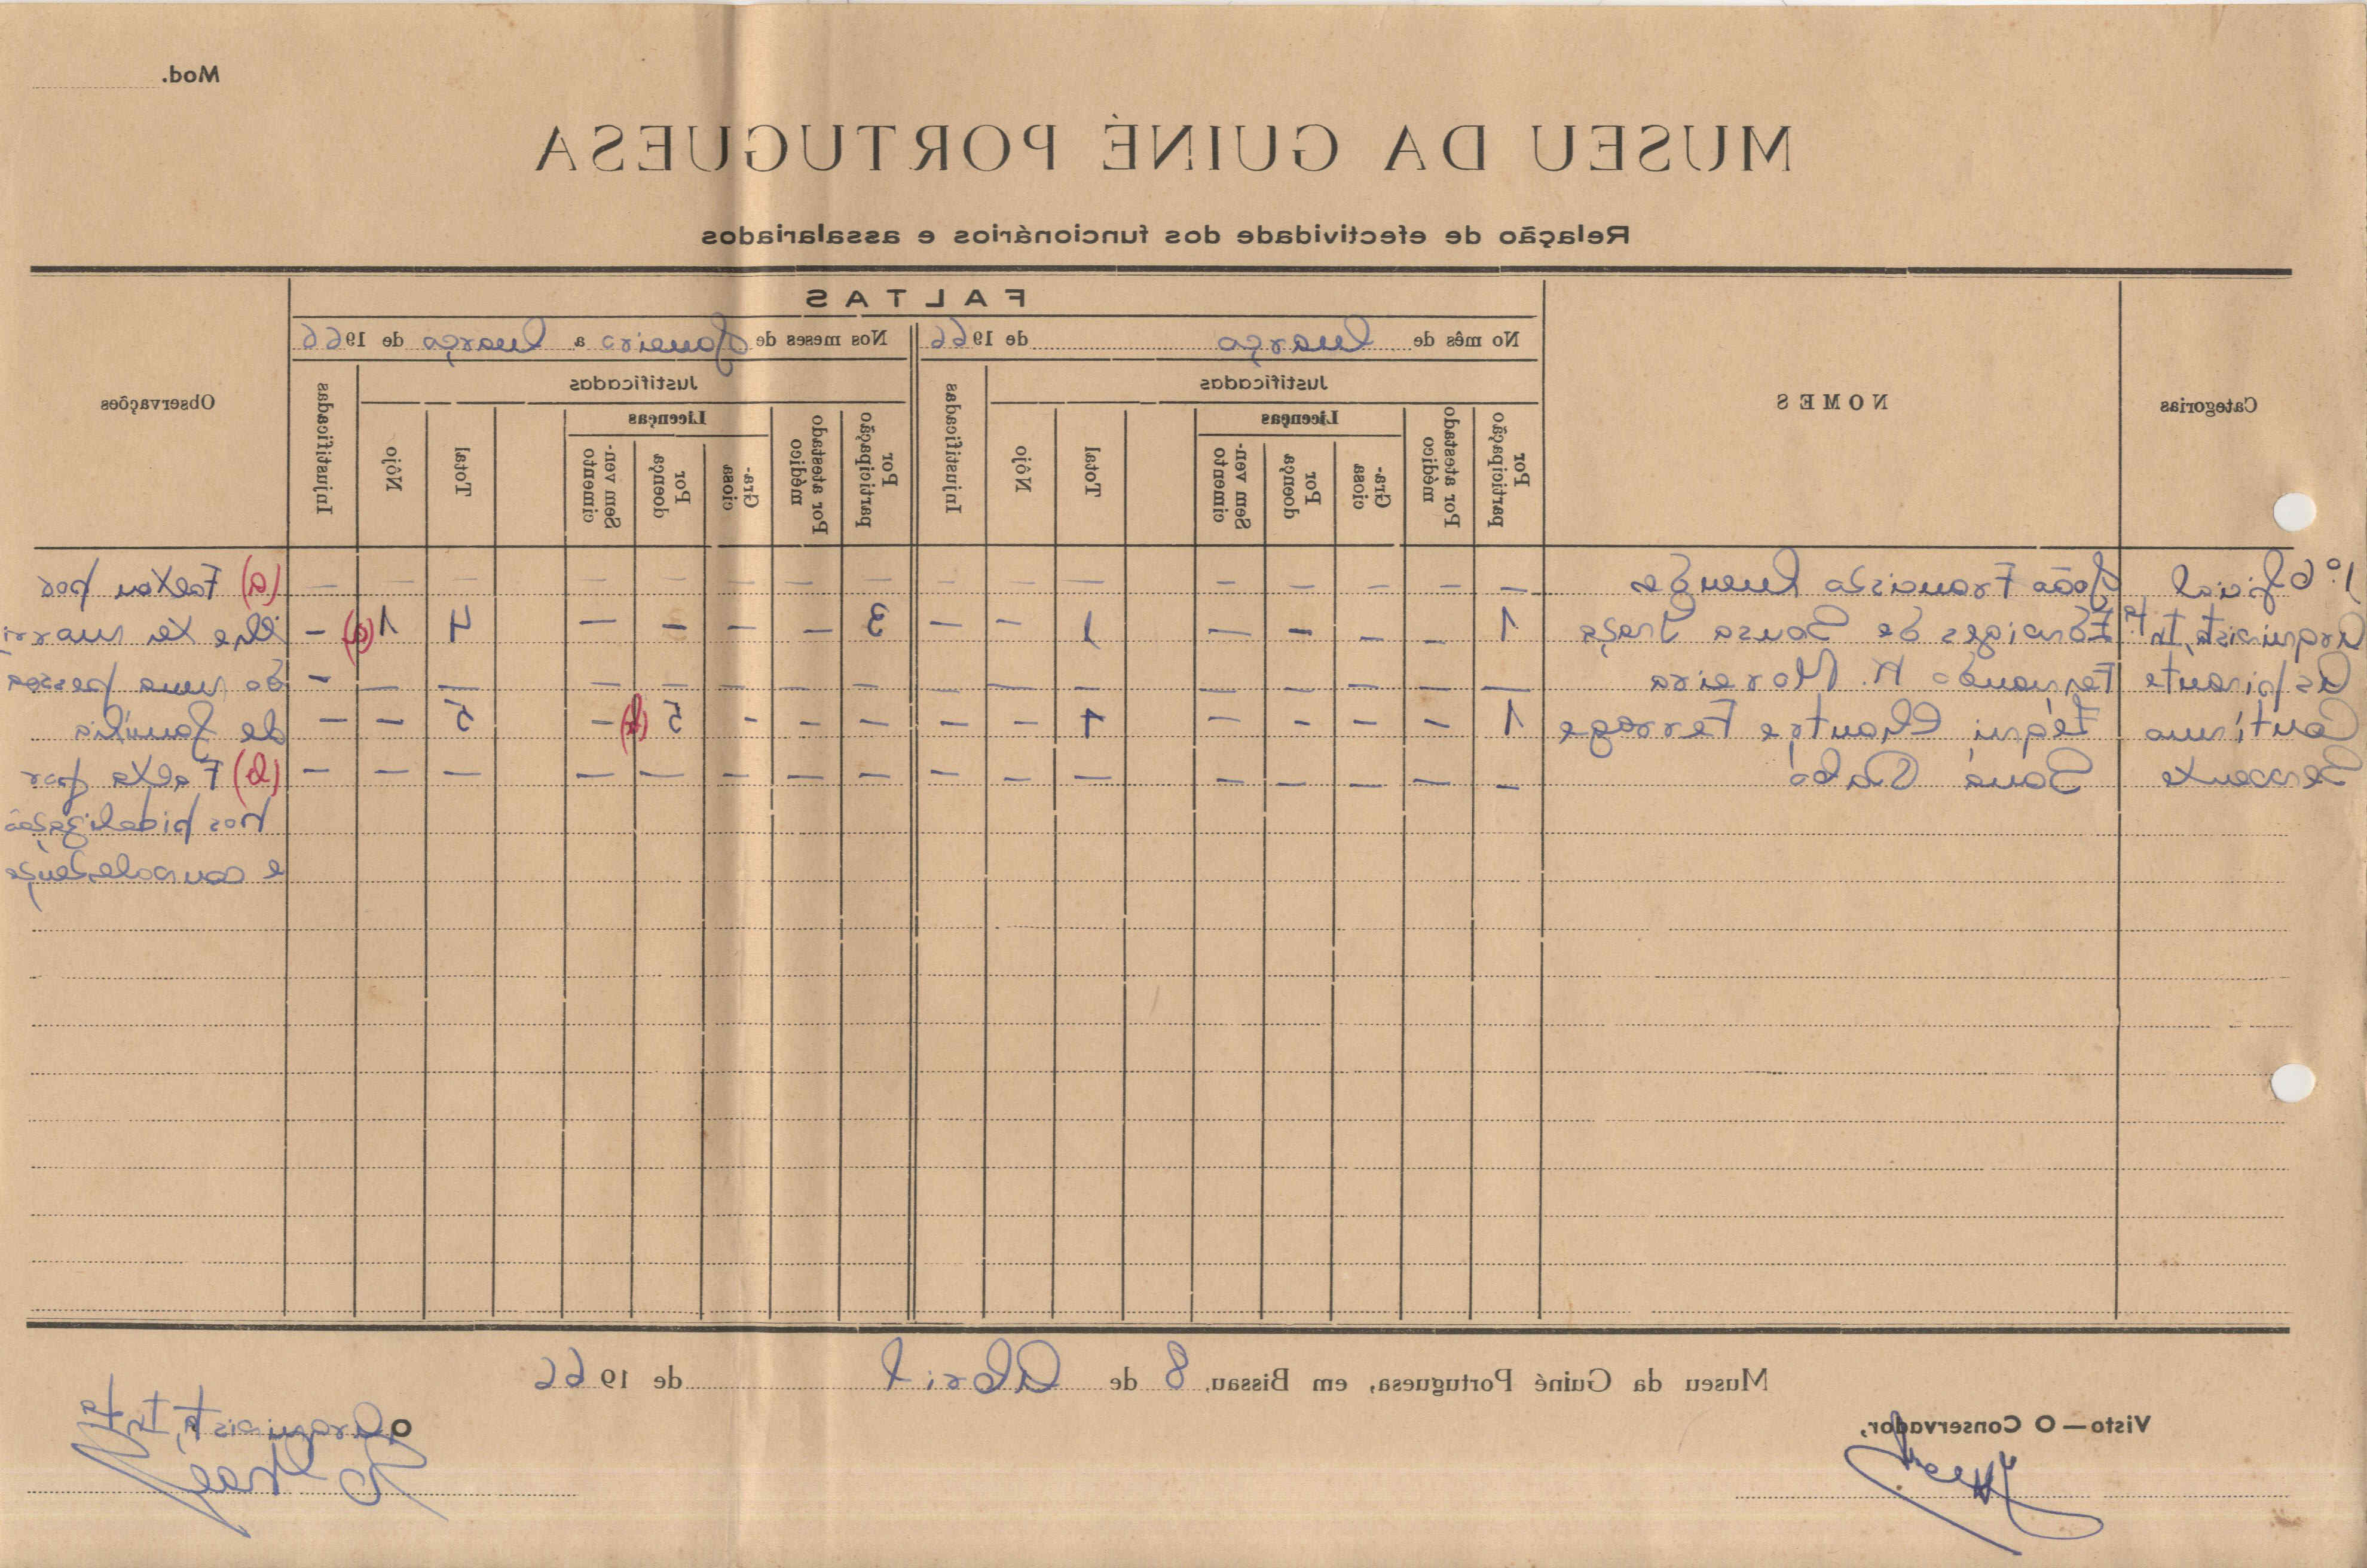 Mod.
MUSEU DA GUINÉ PORTUGUESA
Relação de efectividade dos funcionários e assalariados
Categorias
NOMES
FALTAS
Observações
No mês de Março de 1966
Nos meses de Janeiro a Março de 1966
Justificadas
Injustificadas
Justificadas
Injustificadas
Por participação
Por atestado médico
Licenças
Gra-
ciosa
Por doença
Sem ven-
cimento
Total
Nôjo
Por participação
Por atestado médico
Licenças
Gra-
ciosa
Por doença
Sem ven-
cimento
Total
Nôjo
1.º Oficial João Francisco Mendes — — — — — — — — — — — — — — — — (a) Faltou por
Arquivista, Int.ª Edviges de Sousa 1 — — — — 1 — — 3 — — — — 4 1 (a) —
Aspirante Fernando A. Moreira — — — — — — — — — — — — — — — do numa pessoa
Contínua Ferrage 1 — — — — 1 — — — — — 5 (b) — 5 — — de família
Servente Saná Dabó — — — — — — — — — — — — — — — — (b) Falta por
hospitalização
e
Museu da Guiné Portuguesa, em Bissau, 8 de Abril de 1966
Visto—O Conservador,
O Arquivista, Int.ª